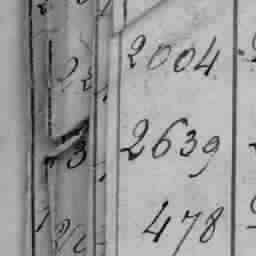 2004
2639
478